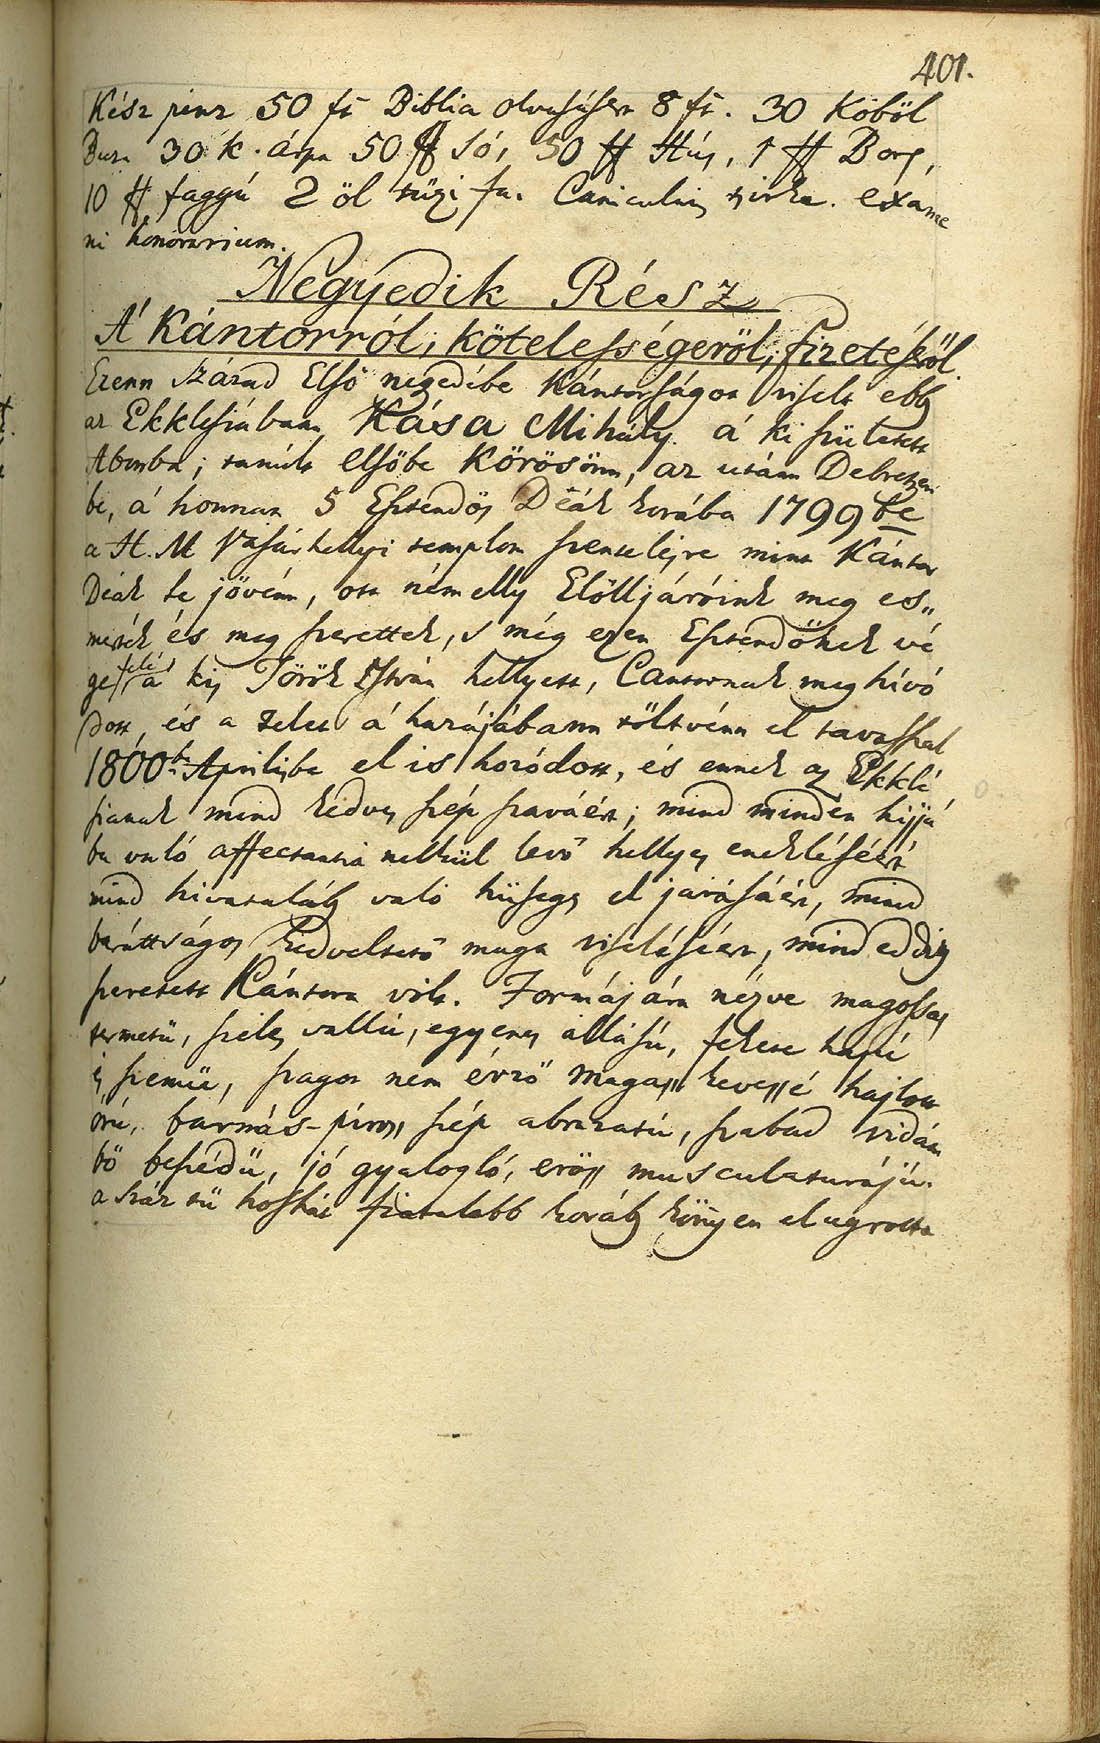 401.
Kész pénz 50 ft Biblia olvasásért 8 ft. 30 Köböl
Buza 30 k. árpa 50 ℔ Só, 50 ℔ Hús, 1 ℔ Bors,
10 ℔ faggyú 2 öl tüzi fa. Caniculáris exáme
ni honorarium.
Negyedik Rész
A' Kántorról, kötelességeröl, fizeteséröl.
Ezenn Század Elsö negedébe Kántorságot viselt ebb
az Ekklesiábann Kása Mihály. á ki született
Abonba; tanúlt elsöbe Körösönn, az utánn Debretzen
be, á honnan 5 Esztendös Deák korába 1799be
a H. M Vásárhellyi templom szentelésre mint Kántor
Deák le jövénn, ott némelly Elölljáróink meg es„
merték és meg szerették, s még ezen Esztendönek vé
ge felé á kis Török István hellyett, Cantornak meg hívó
dott, és a telet á hazájábann töltvénn el tavasszal
1800be Aprilisbe el is hozódott, és ennek az Ekklé
sianak mind kedves szép szaváért; mind minden hijjá
ba való affectatio nelkül levö hellyes eneklésé́ért
mind hivatalába való hüséges el járásáért, mind
baráttságos kedveltetö maga viseléséért, mind eddig
szeretett Kántora vólt. Formájára nézve magossas
termetü, széles vallú, egyenes állású, fekete hajú
s szemü, szagot nem érzö magass kevessé hajlott
órú, barnás-piross szép abrazatú, szabad vidám
bö beszédü, jó gyalogló, eröss musculaturájú.
a fiatalabb korába könyen el ugrotta